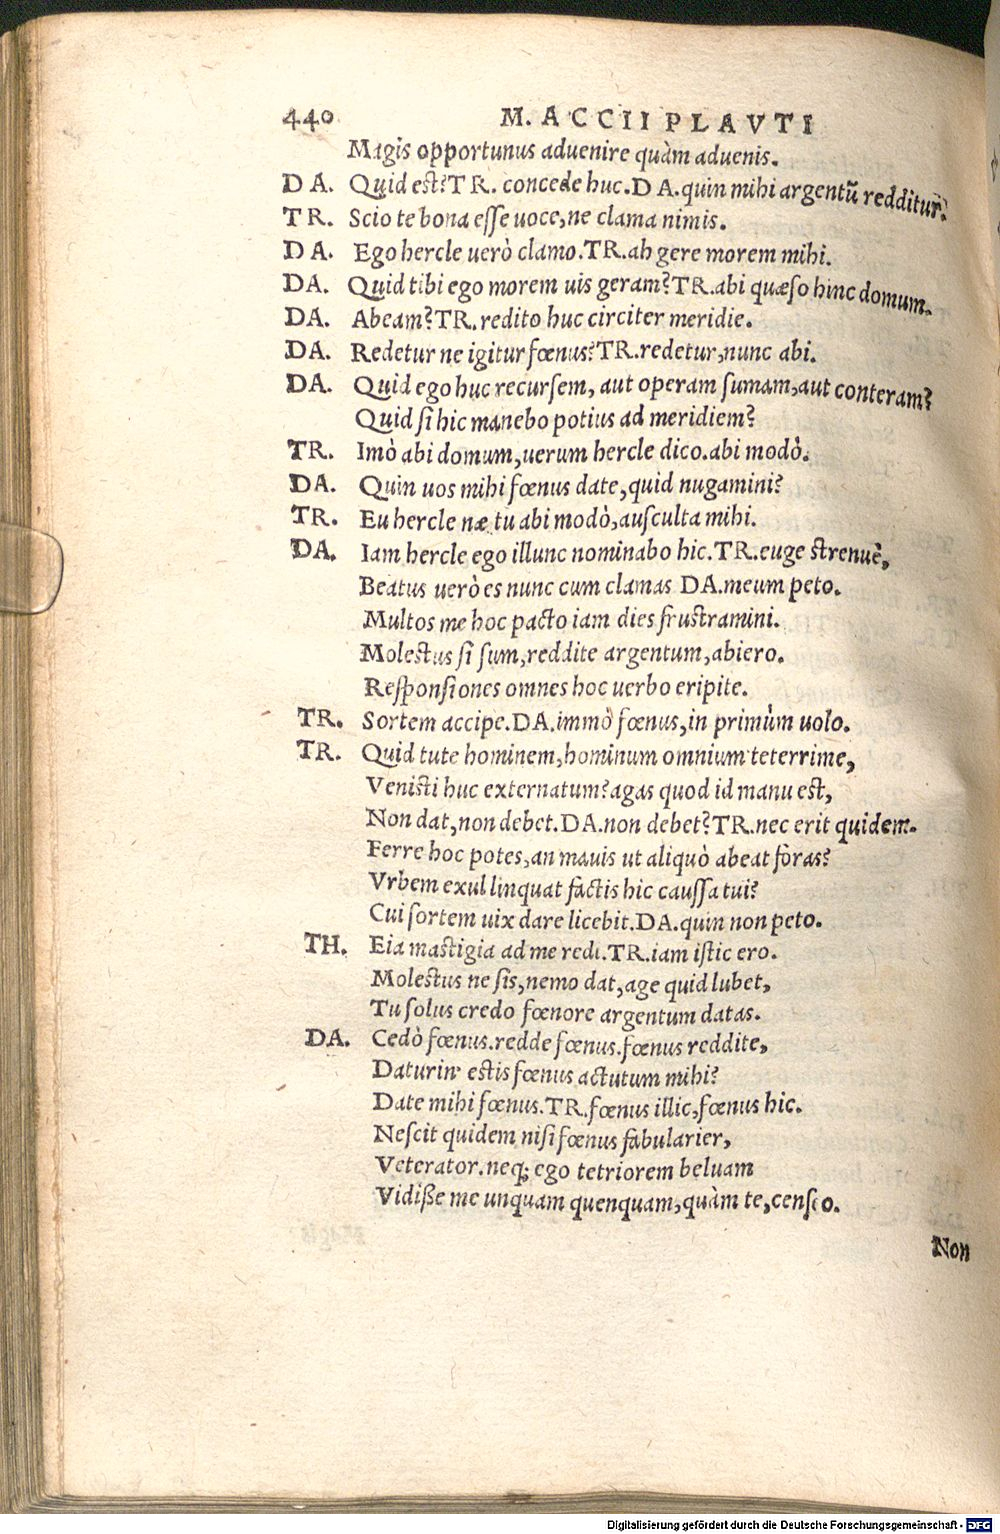 440 M. ACCII PLAVTI
Magis opportunus aduenire quàm aduenis.
DA. Quid est? TR. concede huc. DA. quin mihi argentũ redditur?
TR. Scio te bona esse uoce, ne clama nimis.
DA. Ego hercle uerò clamo. TR. ah gere morem mihi.
DA. Quid tibi ego morem uis geram? TR. abi quæso hinc domum.
DA. Abeam? TR. redito huc circiter meridie.
DA. Redetur ne igitur fœnus? TR. redetur, nunc abi.
DA. Quid ego huc recursem, aut operam sumam, aut conteram?
Quid si hic manebo potius ad meridiem?
TR. Imò abi domum, uerum hercle dico. abi modò.
DA. Quin uos mihi fœnus date, quid nugamini?
TR. Eu hercle næ tu abi modò, ausculta mihi.
DA. Iam hercle ego illunc nominabo hic. TR. euge strenuè,
Beatus uerò es nunc cum clamas DA. meum peto.
Multos me hoc pacto iam dies frustramini.
Molestus si sum, reddite argentum, abiero.
Responsiones omnes hoc uerbo eripite.
TR. Sortem accipe. DA. immò fœnus, in primùm uolo.
TR. Quid tute hominem, hominum omnium teterrime,
Venisti huc externatum? agas quod id manu est,
Non dat, non debet. DA. non debet? TR. nec erit quidem.
Ferre hoc potes, an mauis ut aliquò abeat foras?
Vrbem exul linquat factis hic caussa tui?
Cui sortem uix dare licebit. DA. quin non peto.
TH. Eia mastigia ad me redi. TR. iam istic ero.
Molestus ne sis, nemo dat, age quid lubet,
Tu solus credo fœnore argentum datas.
DA. Cedò fœnus. redde fœnus. fœnus reddite,
Daturin' estis fœnus actutum mihi?
Date mihi fœnus. TR. fœnus illic, fœnus hic.
Nescit quidem nisi fœnus fabularier,
Veterator. neq; ego tetriorem beluam
Vidiße me unquam quenquam, quàm te, censeo.
Non
Digitalisierung gefördert durch die Deutsche Forschungsgemeinschaft - DFG